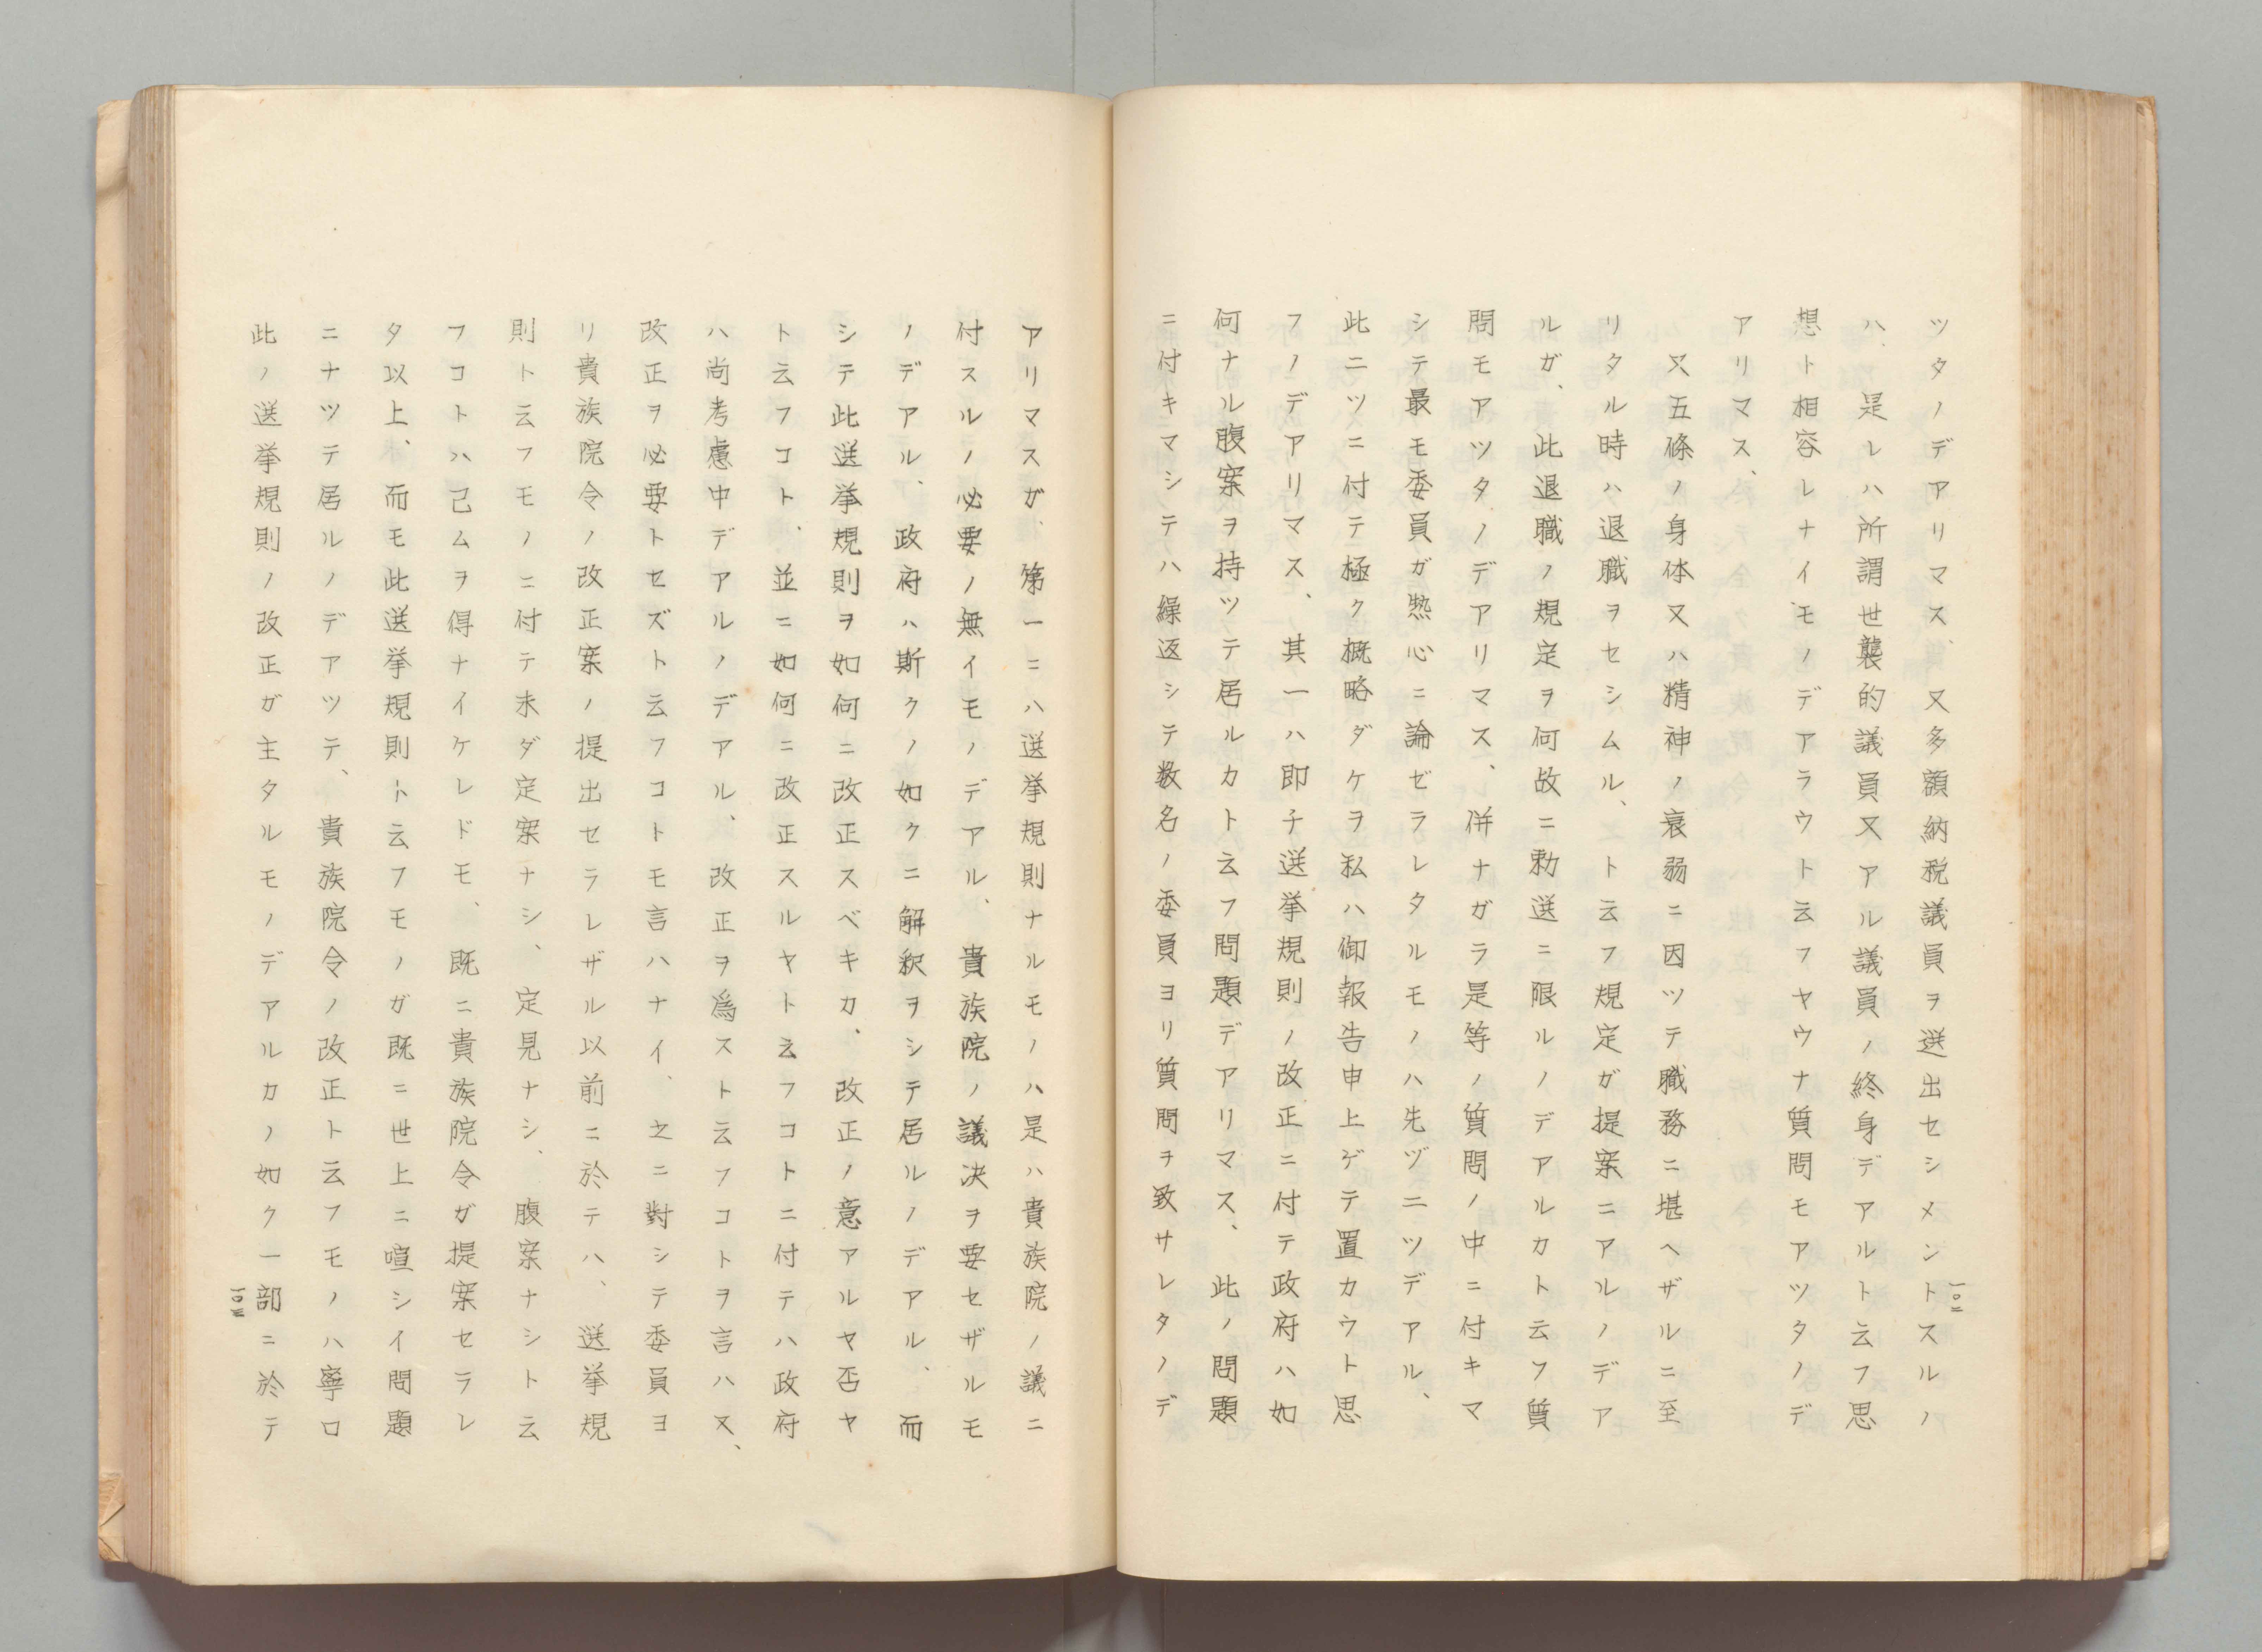 ツタノデアリマス、又多額納税議員ヲ選出セシメントスルノ
ハ、是レハ所謂世襲的議員又アル議員ノ終身デアルト云フ思
想ト相容レナイモノデアラウト云フヤウナ質問モアツタノデ
アリマス、
又五條ノ身体又ハ精神ノ衰弱ニ因ツテ職務ニ堪ヘザルニ至
リタル時ハ退職ヲセシムル、ト云フ規定ガ提案ニアルノデア
ルガ、此退職ノ規定ヲ何故ニ勅選ニ限ルノデアルカト云フ質
問モアツタノデアリマス、併ナガラ是等ノ質問ノ中ニ付キマ
シテ最モ委員ガ熱心ニ論ゼラレタルモノハ先ヅ二ツデアル、
此二ツニ付テ極ク概略ダケヲ私ハ御報告申上ゲテ置カウト思
フノデアリマス、其一ハ即チ選挙規則ノ改正ニ付テ政府ハ如
何ナル腹案ヲ持ツテ居ルカト云フ問題デアリマス、此ノ問題
ニ付キマシテハ繰返シテ数名ノ委員ヨリ質問ヲ致サレタノデ
一〇二
アリマスガ、第一ニハ選挙規則ナルモノハ是ハ貴族院ノ議ニ
付スルノ必要ノ無イモノデアル、貴族院ノ議決ヲ要セザルモ
ノデアル、政府ハ斯クノ如クニ解釈ヲシテ居ルノデアル、而
シテ此選挙規則ヲ如何ニ改正スベキカ、改正ノ意アルヤ否ヤ
ト云フコト、並ニ如何ニ改正スルヤト云フコトニ付テハ政府
ハ尚考慮中デアルノデアル、改正ヲ爲スト云フコトヲ言ハヌ、
改正ヲ必要トセズト云フコトモ言ハナイ、之ニ對シテ委員ヨ
リ貴族院令ノ改正案ノ提出セラレザル以前ニ於テハ、選挙規
則ト云フモノニ付テ未ダ定案ナシ、定見ナシ、腹案ナシト云
フコトハ已ムヲ得ナイケレドモ、既ニ貴族院令ガ提案セラレ
タ以上、而モ此選挙規則ト云フモノガ既ニ世上ニ喧シイ問題
ニナツテ居ルノデアツテ、貴族院令ノ改正ト云フモノハ寧ロ
此ノ選挙規則ノ改正ガ主タルモノデアルカノ如ク一部ニ於テ
一〇三